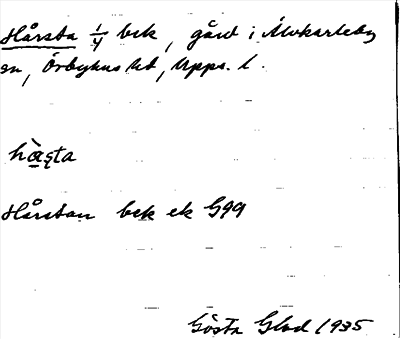 Hårsta 1/4 bek, gård i Älvkarleby
sn, Örbyhus hd, Upps. l.
hàʂta
Hårstan bek ek G99
Gösta Glad 1935